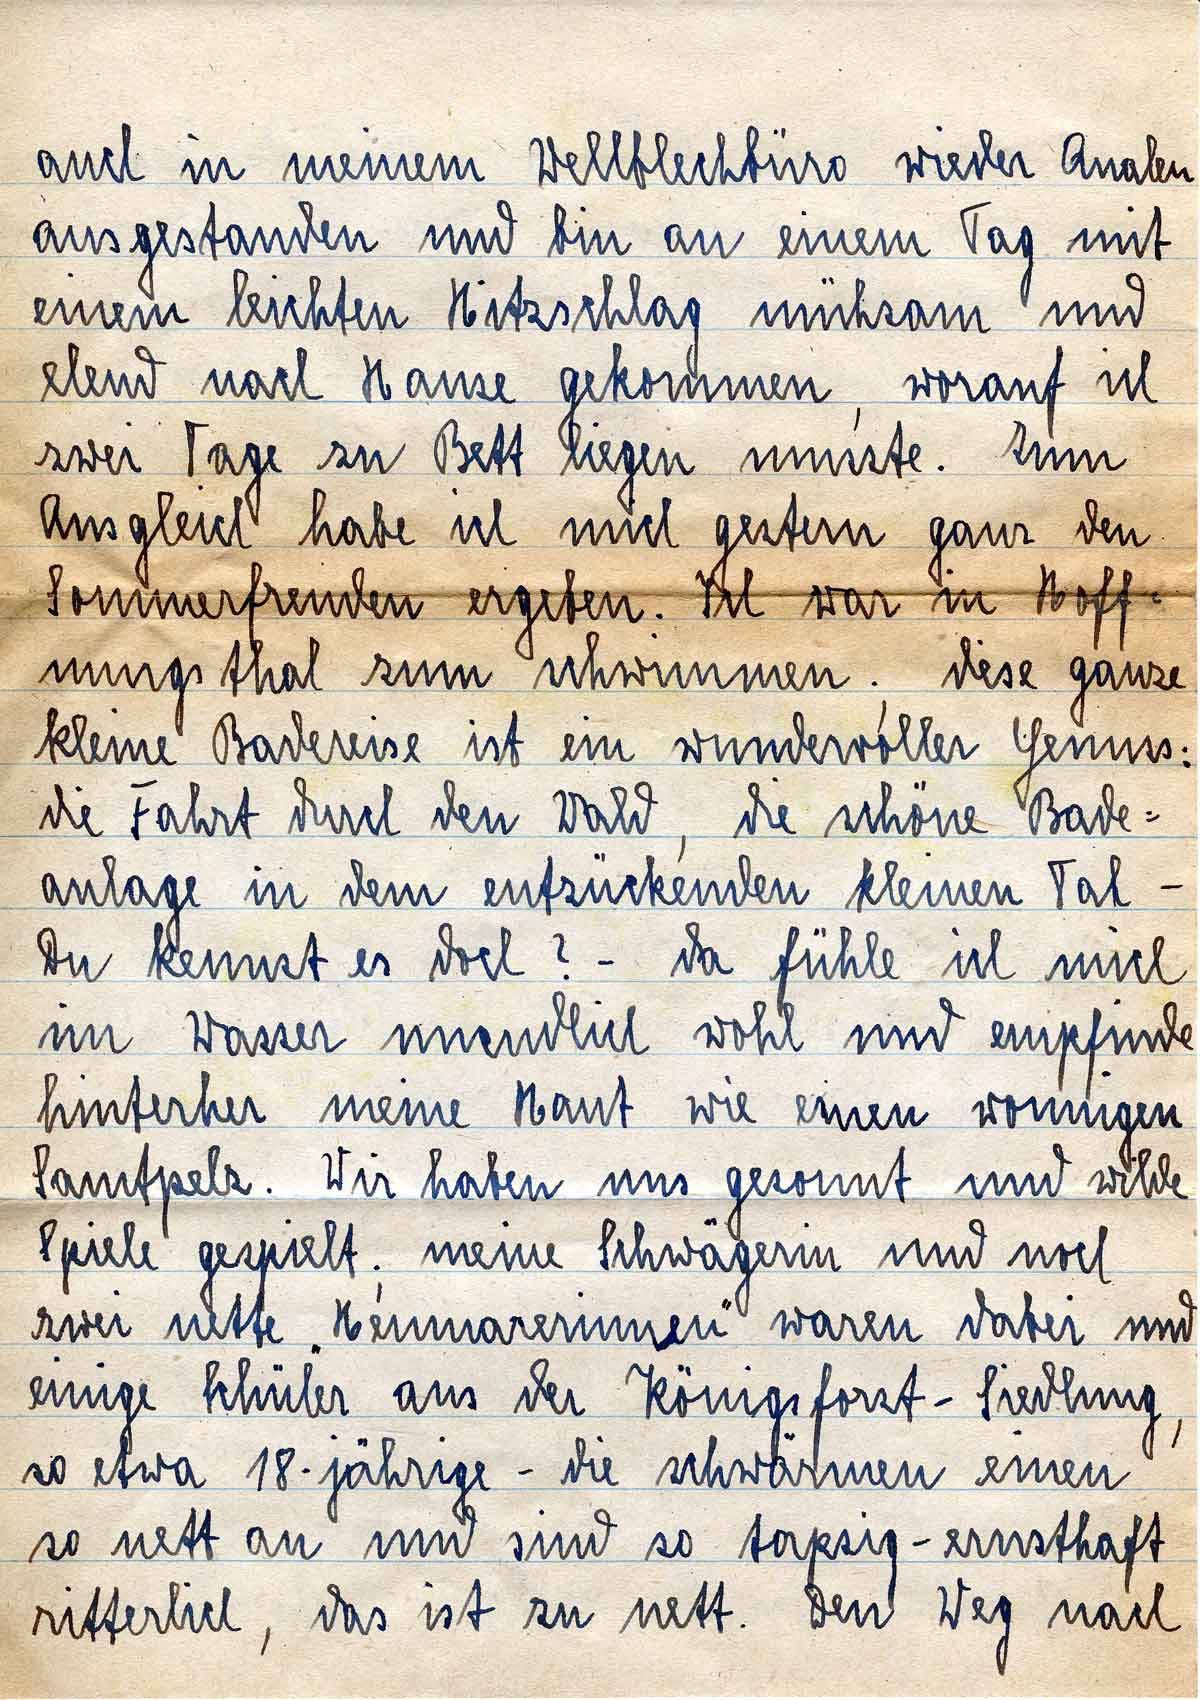 auch in meinem Wellblechbüro wieder Qualen
ausgestanden und bin an einem Tag mit
einem leichten Hitzschlag mühsam und
elend nach Hause gekommen, worauf ich
zwei Tage zu Bett liegen musste. Zum
Ausgleich habe ich mich gestern ganz den
Sommerfreuden ergeben. Ich war in Hoff=
nungsthal zum schwimmen. Diese ganze
kleine Badereise ist ein wundervoller Genuss:
die Fahrt durch den Wald, die schöne Bade=
anlage in dem entzückenden kleinen Tal -
Du kennst es doch? - da fühle ich mich
im Wasser unendlich wohl und empfinde
hinterher meine Haut wie einen wonnigen
Samtpelz. Wir haben uns gesonnt und wilde
Spiele gespielt; meine Schwägerin und noch
zwei nette "Heumarerinnen" waren dabei und
einige Schüler aus der Königsforst-Siedlung,
so etwa 18-jährige - die schwärmen einen
so nett an und sind so tapsig-ernsthaft
ritterlich, das ist zu nett. Den Weg nach